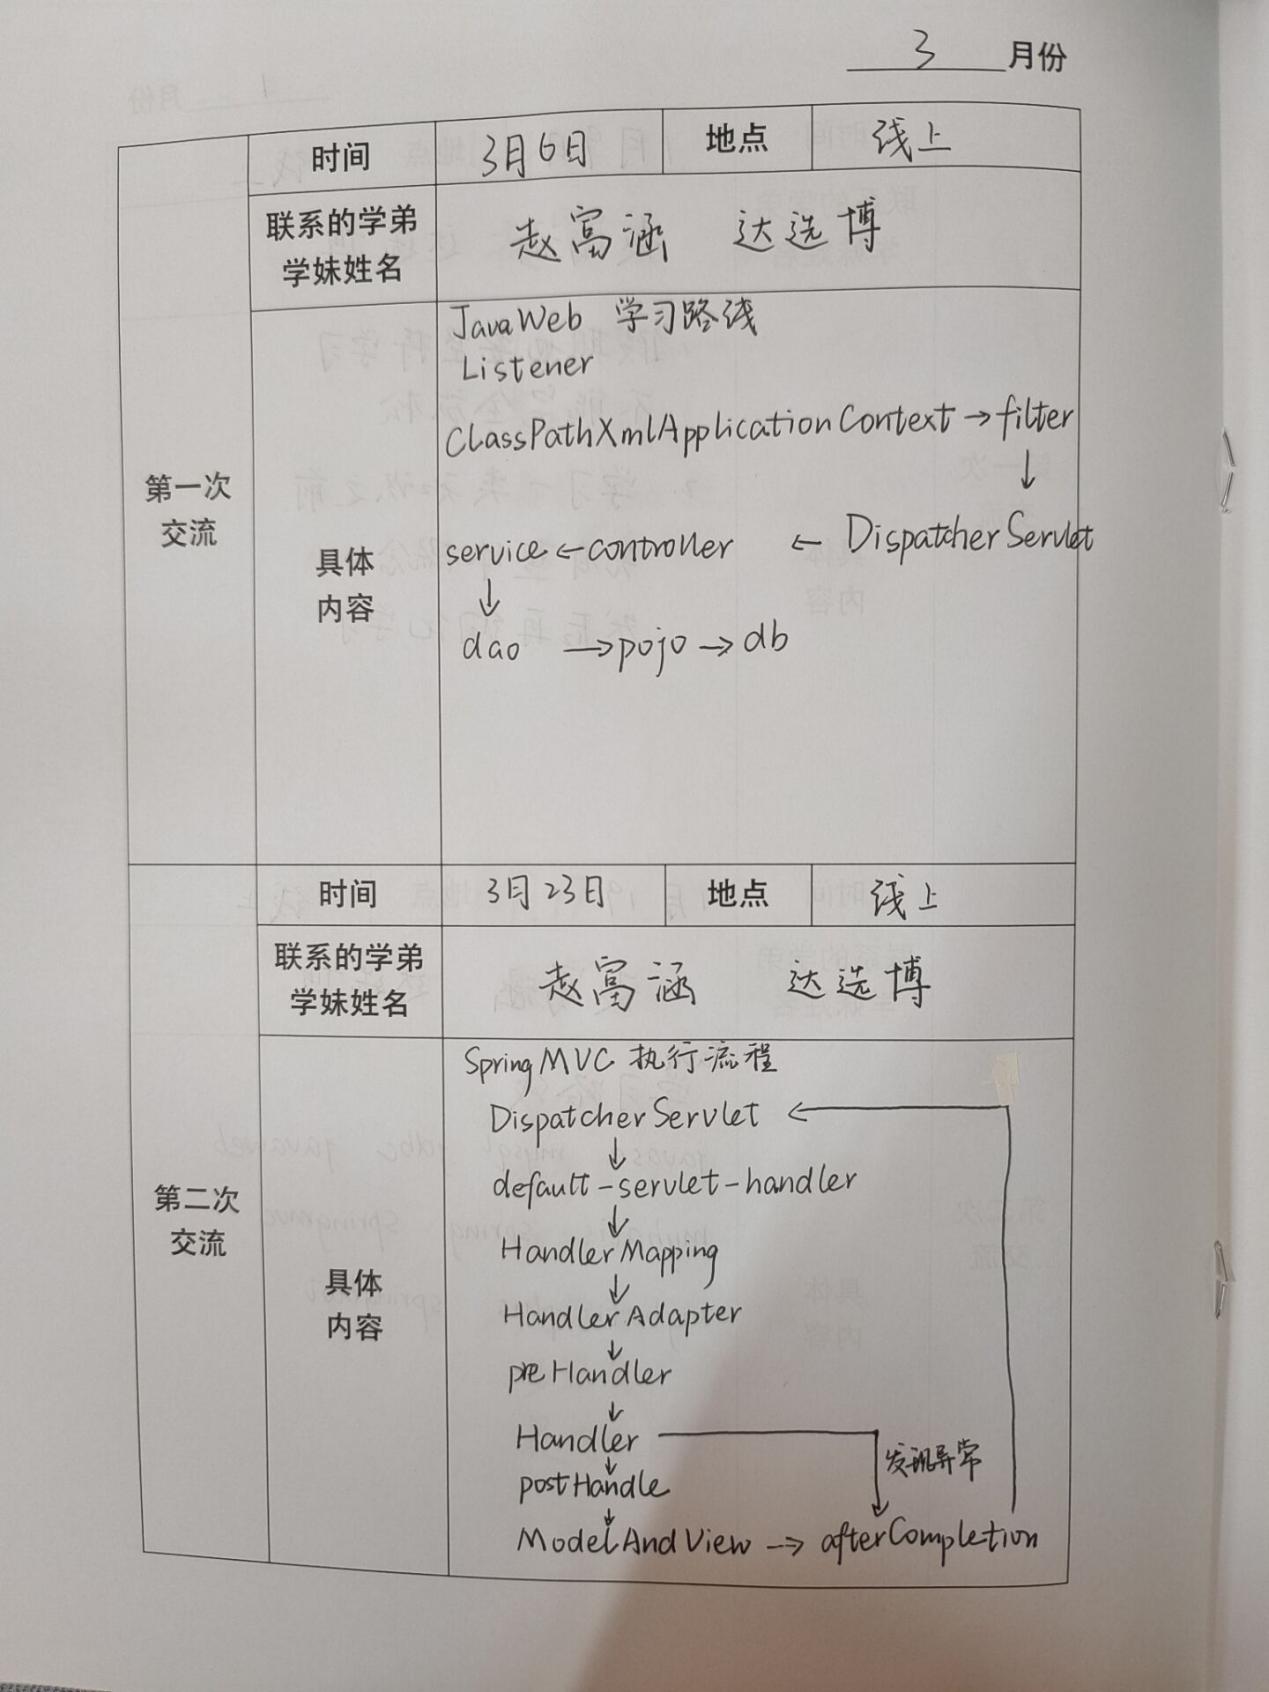 3 月份
时间 3月6日 地点 线上
联系的学弟
学妹姓名
赵富涵 达选博
第一次
交流
具体
内容
JavaWeb 学习路线
Listener
ClassPathXmlApplicationContext → filter
↓
service ← controller ← DispatcherServlet
↓
dao → pojo → db
时间 3月23日 地点 线上
联系的学弟
学妹姓名
赵富涵 达选博
第二次
交流
具体
内容
SpringMVC 执行流程
DispatcherServlet ←
↓
default-servlet-handler
↓
HandlerMapping
↓
HandlerAdapter
↓
preHandler
↓
Handler
发现异常
↓
postHandle
↓
ModelAndView → afterCompletion